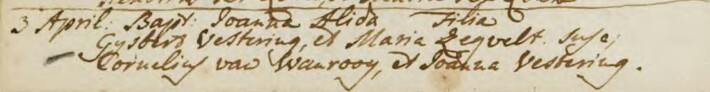 3 April. Bapt: Joanna Alida Filia
Gysberti Vestering, et Maria Zegvelt. Susc;
Cornelius van Wanrooy, et Joanna Vestering.